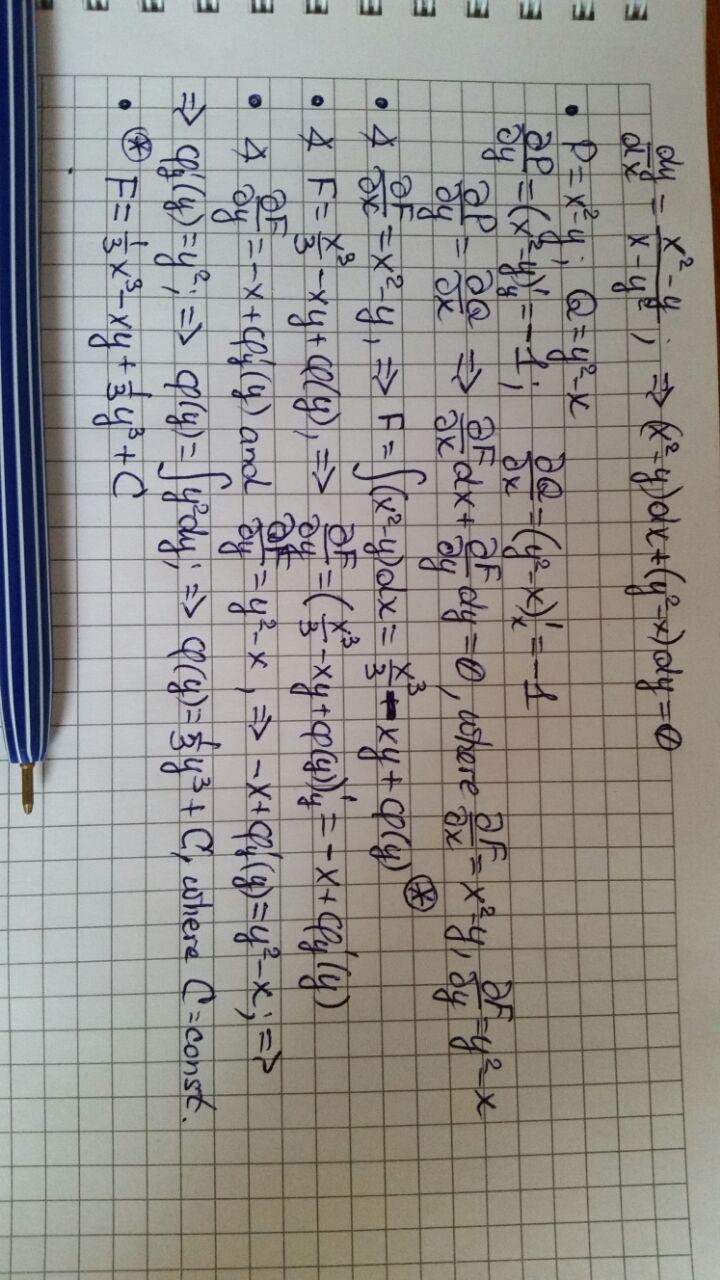 dy/dx = (x²-y)/(x-y²); ⇒ (x²-y)dx+(y²-x)dy=0
• P=x²-y; Q=y²-x
∂P/∂y=(x²-y)'y=-1; ∂Q/∂x=(y²-x)'x=-1
∂P/∂y = ∂Q/∂x ⇒ ∂F/∂x dx+ ∂F/∂y dy=0, where ∂F/∂x=x²-y, ∂F/∂y=y²-x
• ∂F/∂x=x²-y, ⇒ F=∫(x²-y)dx= x³/3 - xy+φ(y) ⊛
• F= x³/3 -xy+φ(y), ⇒ ∂F/∂y=(x³/3 -xy+φ(y))'y=-x+φ'y(y)
• ∂F/∂y=-x+φ'y(y) and ∂F/∂y=y²-x, ⇒ -x+φ'y(y)=y²-x; ⇒
⇒ φ'y(y)=y²; ⇒ φ(y)=∫y²dy; ⇒ φ(y)=1/3 y³+C, where C=const.
• ⊛ F=1/3 x³-xy+1/3 y³+C